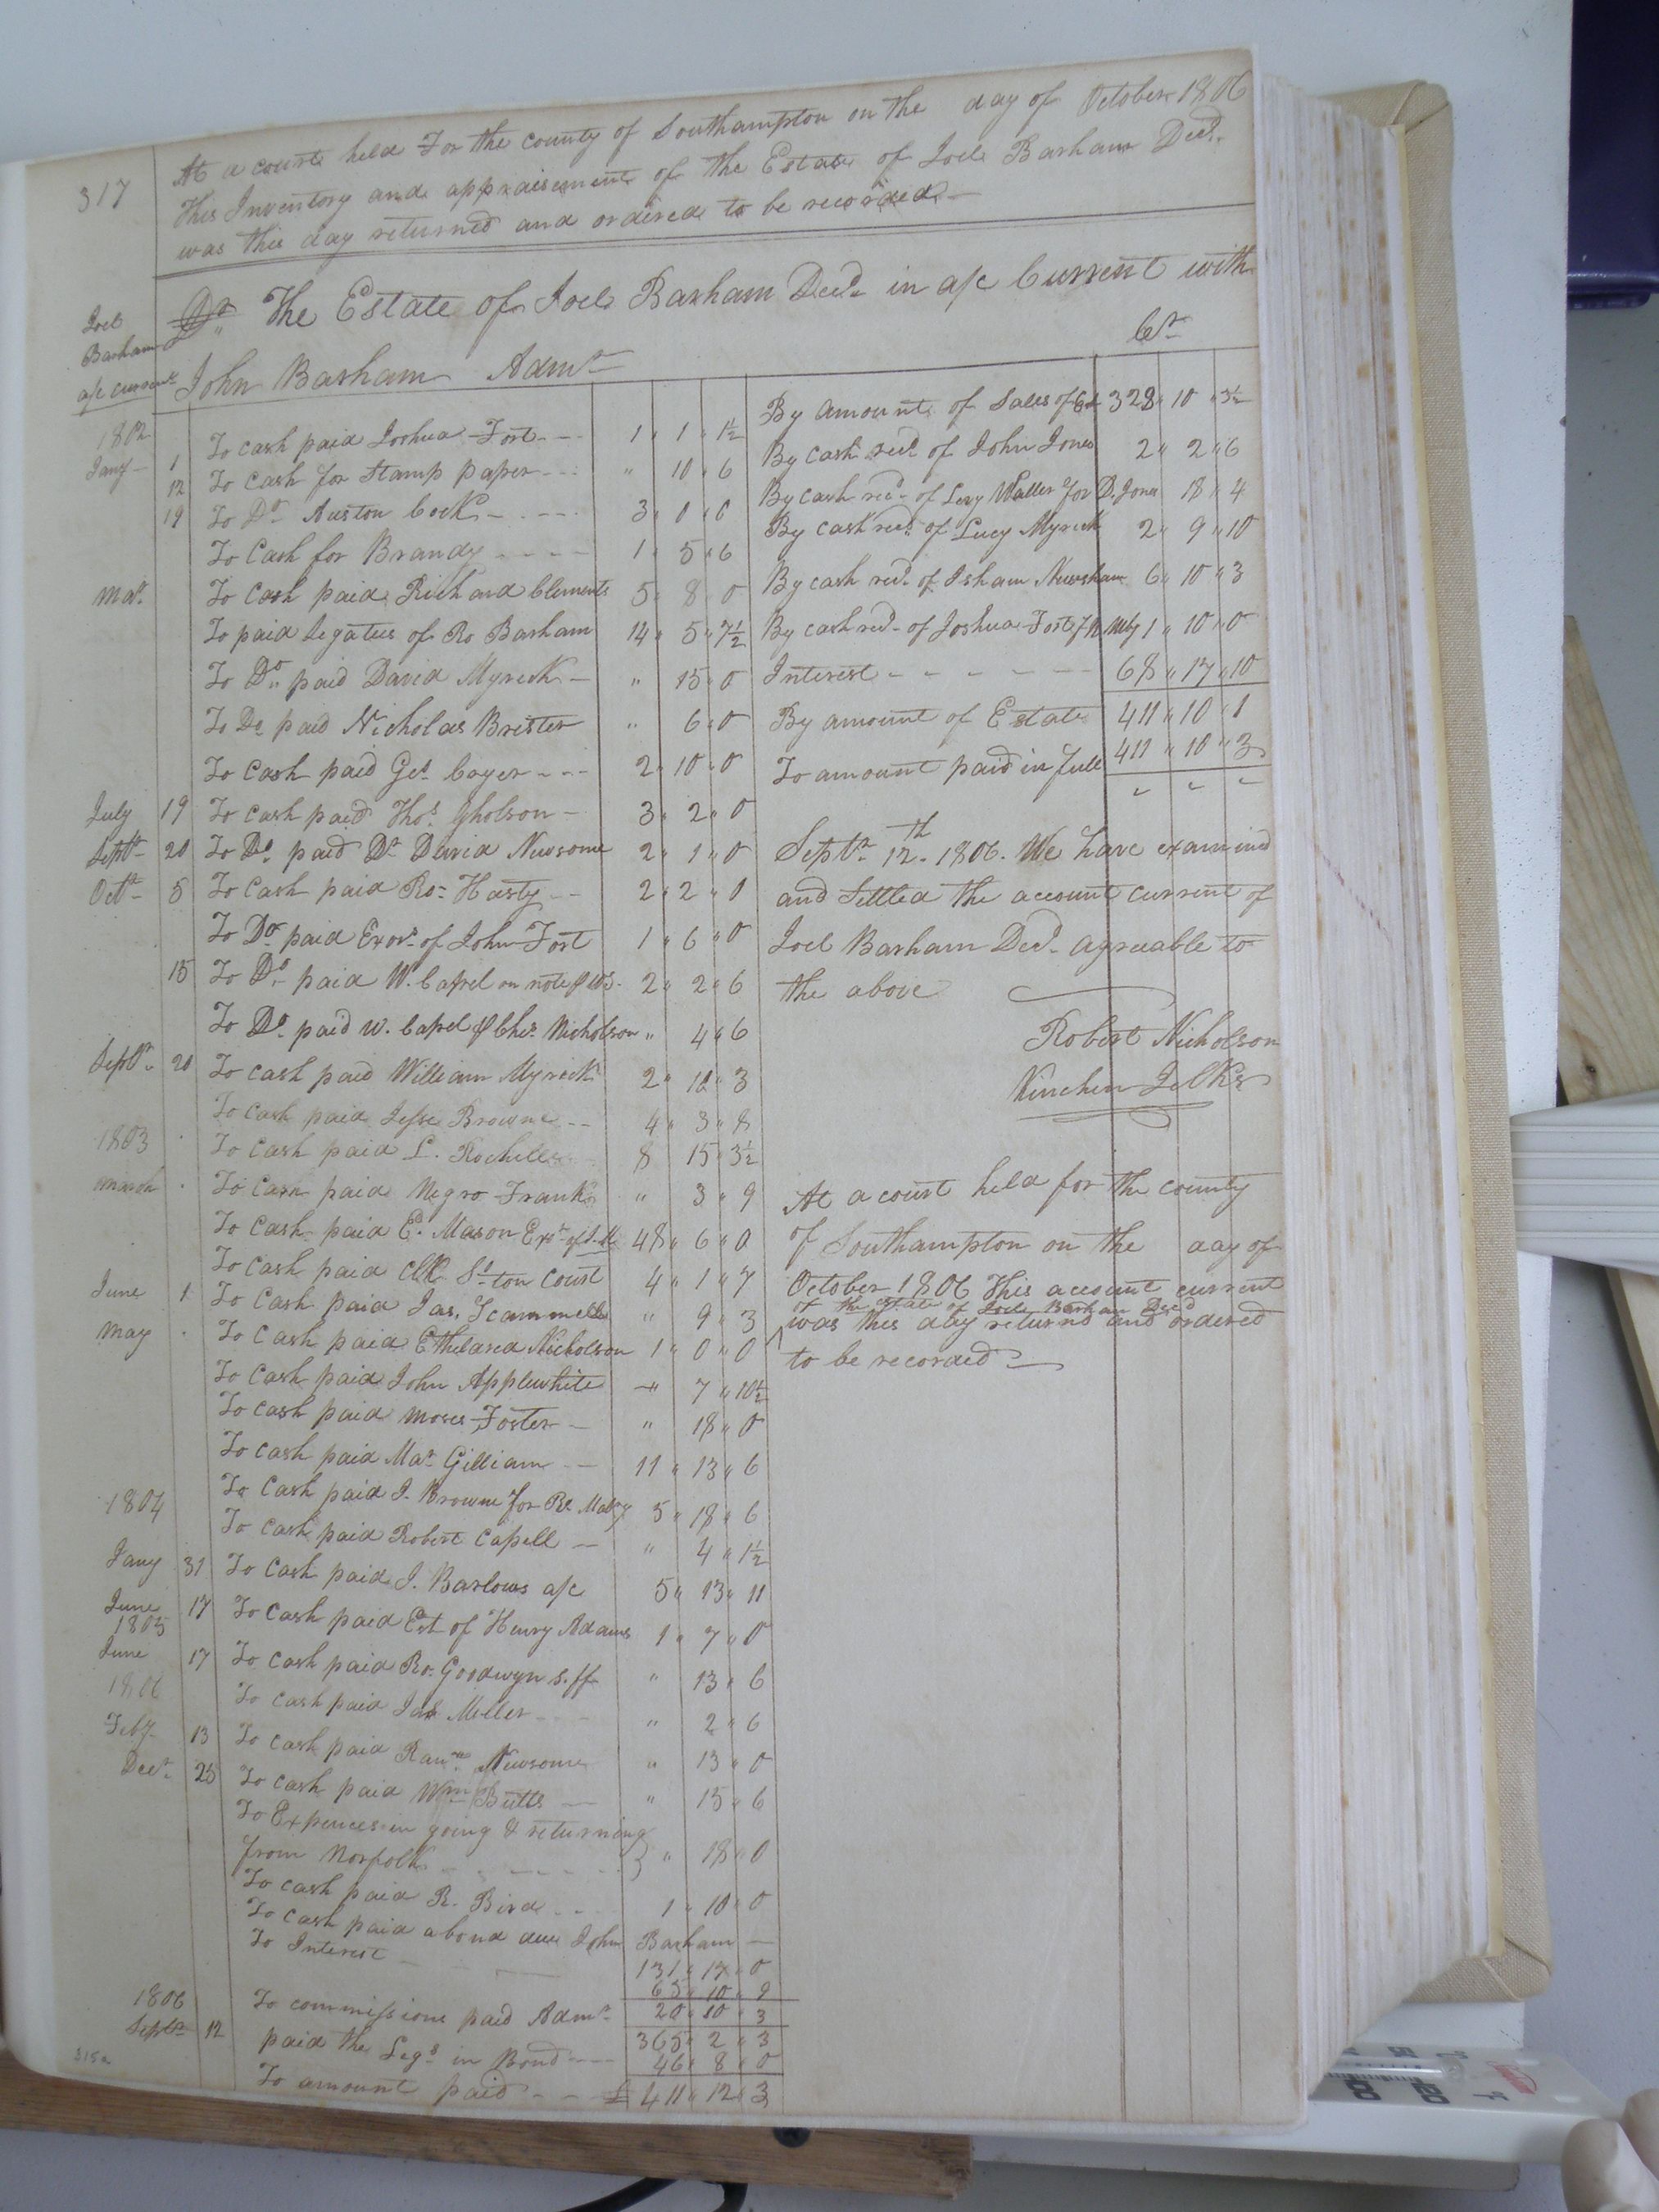 317
At a court held For the county of Southampton on the day of October 1806
This Inventory and appraisement of the Estate of Joel Barham Decd.
was this day returned and ordered to be recorded
Joel
Barham
a/c current
Dr The Estate of Joel Barham Decd. in a/c Current with
John Barham Admr
Cr
1802
Jany 1 To cash paid Joshua Fort 1 " 1 " 1½
12 To cash for Stamp paper " 10 " 6
19 To Do Auston Cock 3 " 0 " 0
To Cash for Brandy 1 " 5 " 6
Mar. To Cash paid Richard Clements 5 " 8 " 0
To paid legatees of Ro Barham 14 " 5 " 7½
To Do paid David Myrick " 15 " 0
To Do paid Nicholas Brister " 6 " 0
To Cash paid Geo. Coyer 2 " 10 " 0
July 19 To cash paid Thos. Gholson 3 " 2 " 0
Septr 20 To Do paid Dr David Newsome 2 " 1 " 0
Octr 5 To Cash paid Ro. Hasty 2 " 2 " 0
To Do paid Exors. of John Fort 1 " 6 " 0
15 To Do paid W. Capel on note 2 " 2 " 6
To Do paid W. Capel Ches. Nicholson " 4 " 6
Septr 20 To Cash paid William Myrick 2 " 12 " 3
To Cash paid Jesse Browne 4 " 3 " 8
1803 To Cash paid L. Rochelle 8 15 " 3½
March To Cash paid Negro Frank " 3 " 9
To Cash paid E. Mason Exr of 48 " 6 " 0
To Cash paid Clk So.ton Court 4 " 1 " 7
June 1 To Cash paid Jas. Scammell " 9 " 3
May To Cash paid Etheldred Nicholson 1 " 0 " 0
To Cash paid John Applewhite " 7 " 10½
To cash paid Moses Foster " 18 " 0
To Cash paid Mar Gilliam 11 " 13 " 6
To Cash paid J. Browne for 5 " 18 " 6
1804 To Cash paid Robert Capell " 4 " 1½
Jany 31 To Cash paid J. Barlows a/c 5 " 13 " 11
June 17 To Cash paid Est of Henry Adams 1 " 7 " 0
1805
June 17 To Cash paid Ro. Goodwyn S.ff " 13 " 6
1806 To Cash paid Jas Meller " 2 " 6
Feby 13 To Cash paid Newsome " 13 " 0
Decr. 25 To Cash paid Wm Butts " 15 " 6
To Expences in going & returning
from Norfolk } " 18 " 0
To Cash paid R. Bird 1 " 10 " 0
To Cash paid a bond due John Barham
131 " 17 " 0
To Interest 65 " 10 " 9
To commissions paid Admr. 20 " 10 " 3
1806 365 " 2 " 3
Septr 12 paid the Legs in Bond 46 " 8 " 0
To amount paid £ 411 " 12 " 3
315a
By amount of Sales of Est 328 " 10 " 3½
By Cash recd. of John Jones 2 " 2 " 6
By cash recd. of Levy Waller for D. Jones 18 " 4
By cash recd. of Lucy Myrick 2 " 9 " 10
By cash recd. of Isham Newsham 6 " 10 " 3
By cash recd. of Joshua Fort 1 " 10 " 0
Interest 68 " 17 " 10
By amount of Estate 411 " 10 " 1
To amount paid in full 411 " 10 " 3
Septr. 12th. 1806. We have examined
and Settled the account current of
Joel Barham Decd. agreeable to
the above
Robert Nicholson
Kinchen Jelks
At a court held for the county
of Southampton on the day of
October 1806 This account current
of the estate of Joel Barham Decd
was this day returnd and ordered
to be recorded